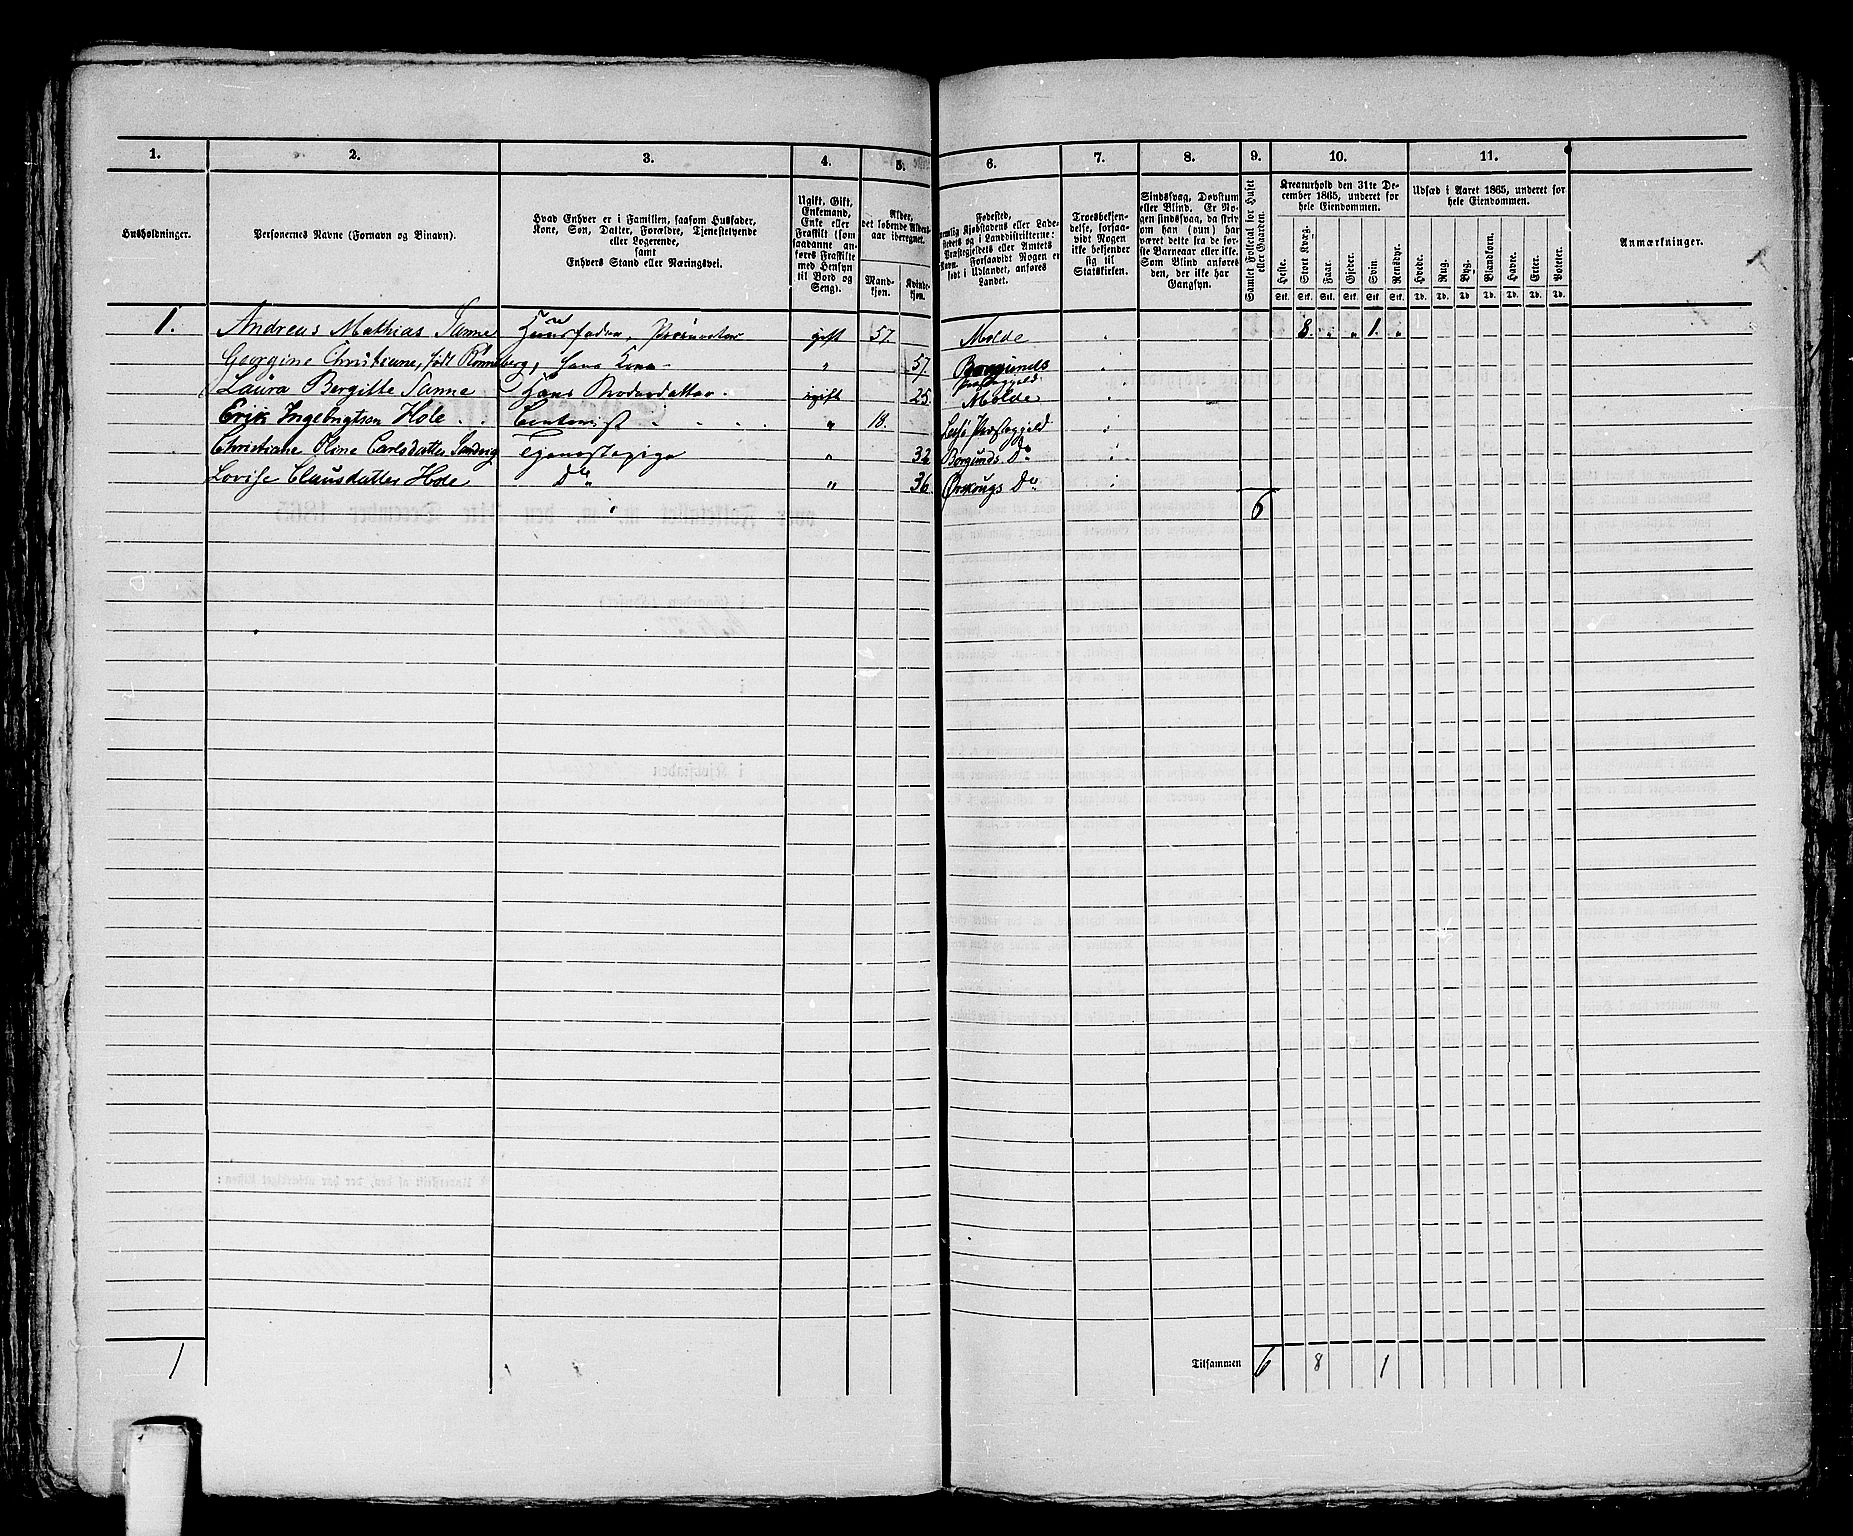 1. 2. 3. 4. 5. 6. 7. 8. 9. 10. 11.
Husholdninger.
Personernes Navne (Fornavn og Binavn).
Hvad Enhver er i Familien, saasom Husfader,
Kone, Søn, Datter, Forældre, Tjenestetyende
eller Logerende,
samt
Enhvers Stand eller Næringsvei.
Ugift, Gift,
Enkemand,
Enke eller
Fraskilt (som
saadanne an-
føres Fraskilte
med Hensyn
til Bord og
Seng).
Alder,
det løbende Alders-
aar iberegnet.
Mand-
kjøn.
Kvinde-
kjøn.
Fødested,
nemlig Kjøbstadens eller Lade-
stedets og i Landdistrikterne:
Præstegjeldets eller Amtets
Navn. Forsaavidt Nogen er
født i Udlandet, anføres
Landet.
Troesbekjen-
delse, forsaa-
vidt Nogen
ikke bekjender
sig til
Statskirken.
Sindssvag, Døvstum
eller Blind. Er No-
gen sindssvag, da skriv
om han (hun) har
været dette fra de før-
ste Barneaar eller ikke.
Som Blind anføres
den, der ikke har
Gangsyn.
Samlet Folketal for Huset
eller Gaarden.
Kreaturhold den 31te De-
cember 1865, underet for
hele Eiendommen.
Heste. Stort Kvæg. Faar. Gjeder. Svin. Rensdyr.
Stk. Stk. Stk. Stk. Stk. Stk.
Udsæd i Aaret 1865, underet for
hele Eiendommen.
Hvede. Rug. Byg. Blandkorn. Havre. Erter. Poteter.
Td. Td. Td Td. Td. Td. Td.
Anmærkninger.
1. Andreas Mathias Tanne Huusfader, gift 57. Molde 8. " " 1. "
Georgine Christiane, født Rønneberg, hans Kone " 57. Borgunds Præsteggeld
Laura Bergitte Tanne Hans Broderdatter. ugift 25. Molde
Erik Ingebrigtsen Hole Contorist " 18. Lesjø Præsteggeld
Christiane Oline Carlsdatter Sandvig Tjenestepige " 32 Borgunds Do
Lovise Clausdatter Hole Do " 36 Ørskougs Do
6
1 Tilsammen 6 8 1